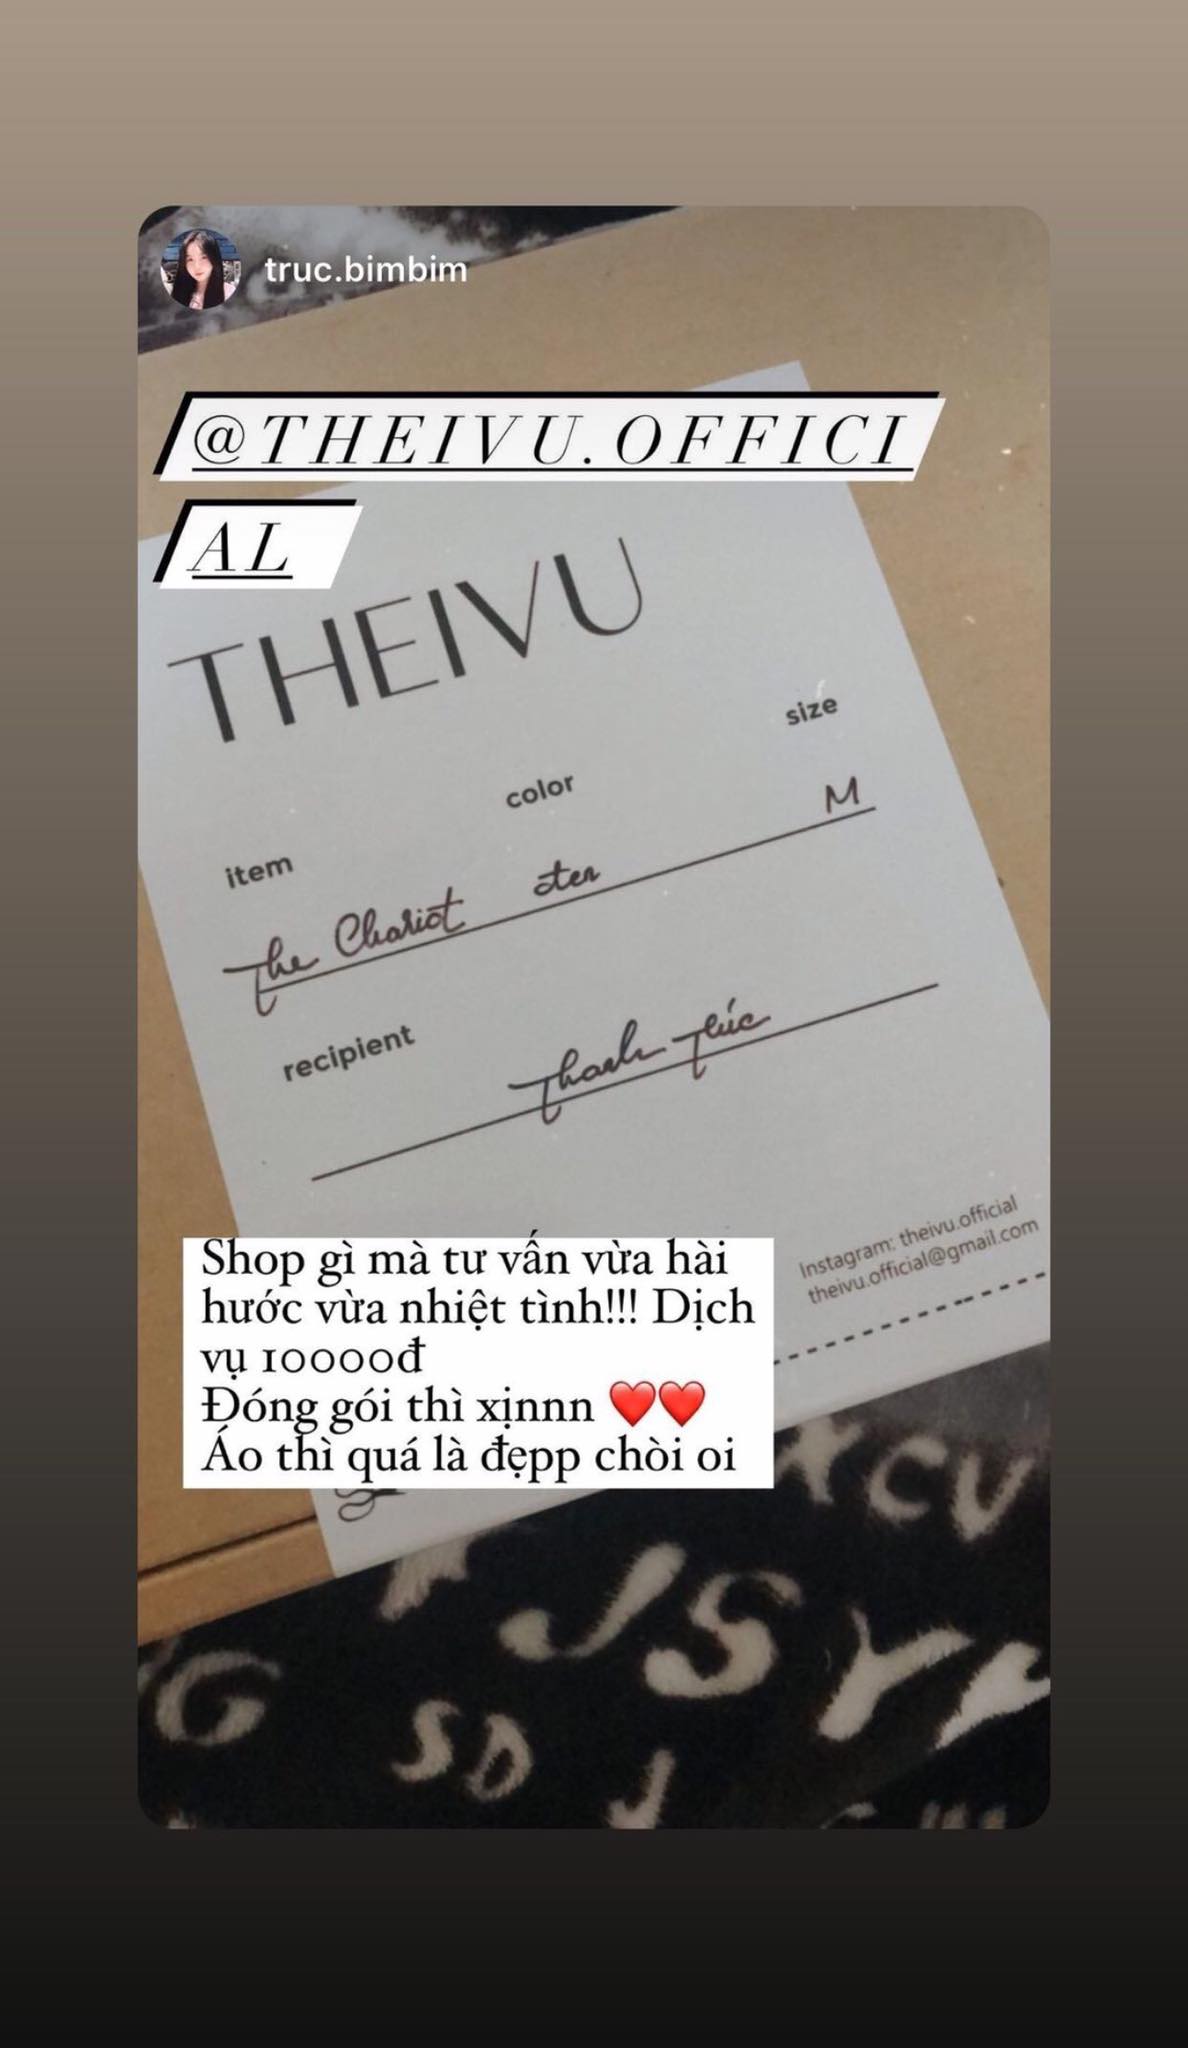 truc.bimbim
@THEIVU.OFFICI
AL
THEIVU
size
color
item
M
đen
The Chariot
recipient
Thanh Trúc
Instagram: theivu.official
theivu.official@gmail.com
Shop gì mà tư vấn vừa hài
hước vừa nhiệt tình!!! Dịch
vụ 10000đ
Đóng gói thì xịnnn ❤️❤️
Áo thì quá là đẹpp chòi oi
X C V
J S Y
G
S D